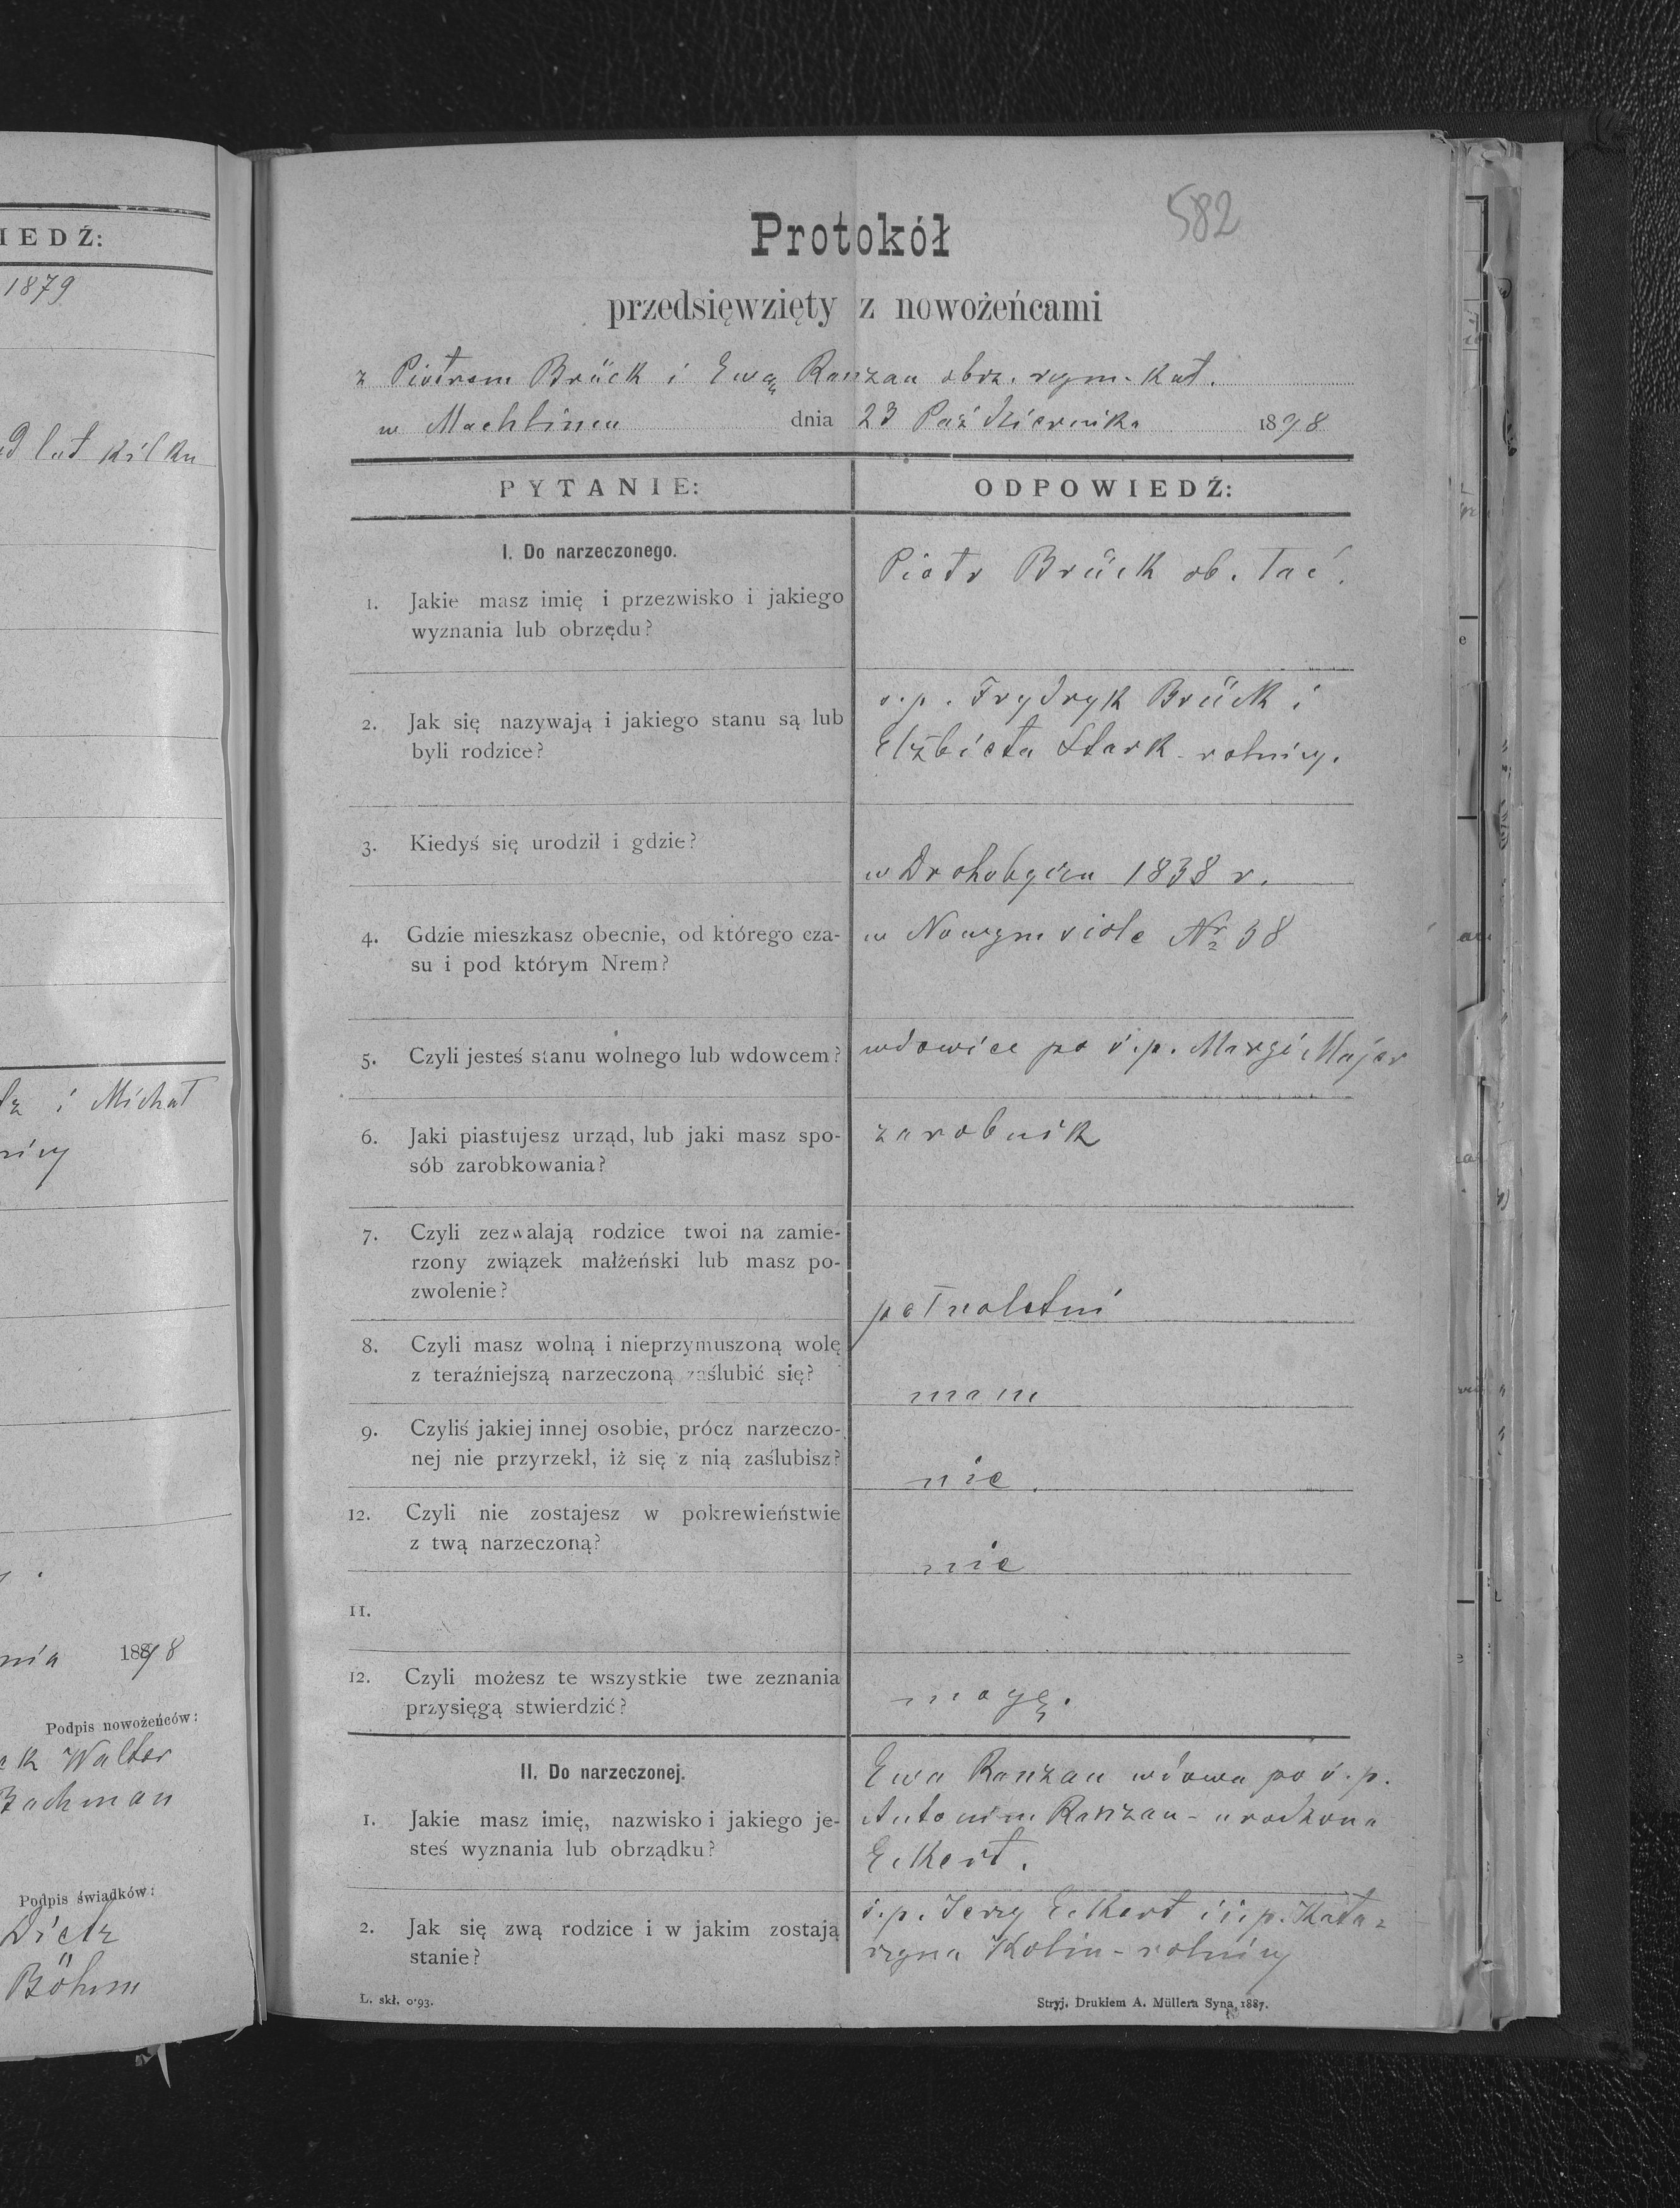 IEDŹ:
1879
lat kilku
i Michał
nia 1898
Podpis nowożeńców:
Walter
Bachman
Podpis świadków:
Dietz
Böhm
582
Protokół
przedsięwzięty z nowożeńcami
z Piotrem Brück i Ewą Ranzau obrz. rzym. kat.
w Machlincu dnia 23 Października 1898
PYTANIE: ODPOWIEDŹ:
I. Do narzeczonego.
1. Jakie masz imię i przezwisko i jakiego
wyznania lub obrzędu?
Piotr Brück ob. łać.
2. Jak się nazywają i jakiego stanu są lub
byli rodzice?
ś.p. Frydryk Brück i
Elżbieta Stark - rolnicy.
3. Kiedyś się urodził i gdzie?
w Drohobyczu 1838 r.
4. Gdzie mieszkasz obecnie, od którego cza-
su i pod którym Nrem?
w Nowymsiole Nr 38
5. Czyli jesteś stanu wolnego lub wdowcem?
wdowiec po ś.p. Maryi Majer
6. Jaki piastujesz urząd, lub jaki masz spo-
sób zarobkowania?
zarobnik
7. Czyli zezwalają rodzice twoi na zamie-
rzony związek małżeński lub masz po-
zwolenie?
pełnoletni
8. Czyli masz wolną i nieprzymuszoną wolę
z teraźniejszą narzeczoną zaślubić się?
mam
9. Czyliś jakiej innej osobie, prócz narzeczo-
nej nie przyrzekł, iż się z nią zaślubisz?
nie.
12. Czyli nie zostajesz w pokrewieństwie
z twą narzeczoną?
nie
11.
12. Czyli możesz te wszystkie twe zeznania
przysięgą stwierdzić?
mogę.
II. Do narzeczonej.
1. Jakie masz imię, nazwisko i jakiego je-
steś wyznania lub obrządku?
Ewa Ranzau wdowa po ś.p.
Antonim Ranzau - urodzona
Eckert.
2. Jak się zwą rodzice i w jakim zostają
stanie?
ś.p. Jerzy Eckert i ś.p. Kata-
rzyna Kolin - rolnicy
L. skł. 0·93.
Stryj. Drukiem A. Müllera Syna, 1887.